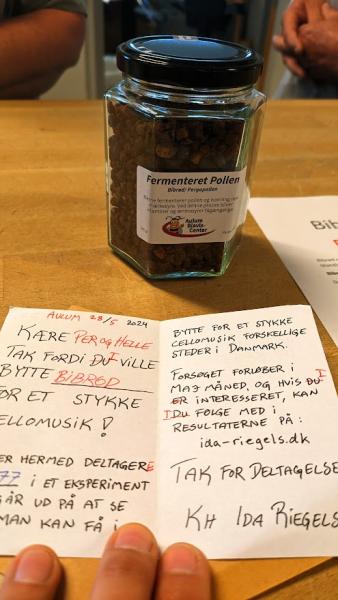 Fermenteret Pollen
Bibrød/ Pergapollen
fermenterer pollen og honning
Ved denne proces bliver
vitaminer og aminosyrer tilgængelige
Aulum
Biavls-
Center
Bib
AULUM 28/5 2024
KÆRE PER OG HELLE
TAK FORDI DU I VILLE
BYTTE BIBRØD
FOR ET STYKKE
CELLOMUSIK!
ER HERMED DELTAGERE
77 I ET EKSPERIMENT
GÅR UD PÅ AT SE
MAN KAN FÅ I
BYTTE FOR ET STYKKE
CELLOMUSIK FORSKELLIGE
STEDER I DANMARK.
FORSØGET FORLØBER I
MAJ MÅNED, OG HVIS DU I
ER INTERESSERET, KAN
I DU FØLGE MED I
RESULTATERNE PÅ:
ida-riegels.dk
TAK FOR DELTAGELSE
KH IDA RIEGELS